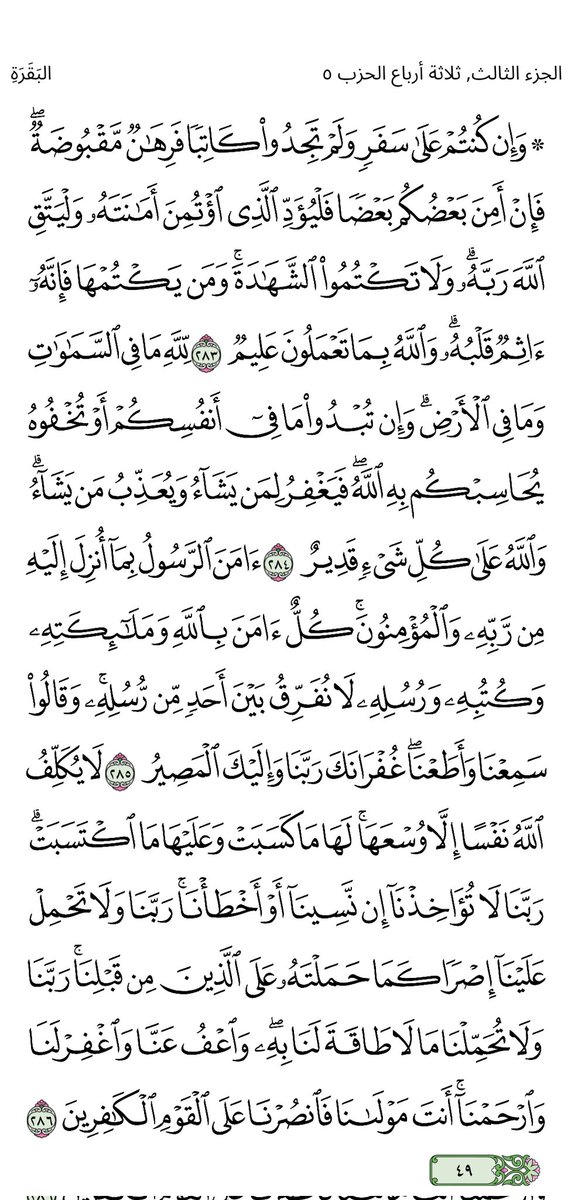 الجزء الثالث, ثلاثة أرباع الحزب ٥ البَقَرَةِ
* وَإِن كُنتُمْ عَلَىٰ سَفَرٍ وَلَمْ تَجِدُوا۟ كَاتِبًا فَرِهَـٰنٌ مَّقْبُوضَةٌ ۖ
فَإِنْ أَمِنَ بَعْضُكُم بَعْضًا فَلْيُؤَدِّ ٱلَّذِى ٱؤْتُمِنَ أَمَـٰنَتَهُۥ وَلْيَتَّقِ
ٱللَّهَ رَبَّهُۥ ۗ وَلَا تَكْتُمُوا۟ ٱلشَّهَـٰدَةَ ۚ وَمَن يَكْتُمْهَا فَإِنَّهُۥٓ
ءَاثِمٌ قَلْبُهُۥ ۗ وَٱللَّهُ بِمَا تَعْمَلُونَ عَلِيمٌ ٢٨٣ لِّلَّهِ مَا فِى ٱلسَّمَـٰوَٰتِ
وَمَا فِى ٱلْأَرْضِ ۗ وَإِن تُبْدُوا۟ مَا فِىٓ أَنفُسِكُمْ أَوْ تُخْفُوهُ
يُحَاسِبْكُم بِهِ ٱللَّهُ ۖ فَيَغْفِرُ لِمَن يَشَآءُ وَيُعَذِّبُ مَن يَشَآءُ ۗ
وَٱللَّهُ عَلَىٰ كُلِّ شَىْءٍ قَدِيرٌ ٢٨٤ ءَامَنَ ٱلرَّسُولُ بِمَآ أُنزِلَ إِلَيْهِ
مِن رَّبِّهِۦ وَٱلْمُؤْمِنُونَ ۚ كُلٌّ ءَامَنَ بِٱللَّهِ وَمَلَـٰٓئِكَتِهِۦ
وَكُتُبِهِۦ وَرُسُلِهِۦ لَا نُفَرِّقُ بَيْنَ أَحَدٍ مِّن رُّسُلِهِۦ ۚ وَقَالُوا۟
سَمِعْنَا وَأَطَعْنَا ۖ غُفْرَانَكَ رَبَّنَا وَإِلَيْكَ ٱلْمَصِيرُ ٢٨٥ لَا يُكَلِّفُ
ٱللَّهُ نَفْسًا إِلَّا وُسْعَهَا ۚ لَهَا مَا كَسَبَتْ وَعَلَيْهَا مَا ٱكْتَسَبَتْ ۗ
رَبَّنَا لَا تُؤَاخِذْنَآ إِن نَّسِينَآ أَوْ أَخْطَأْنَا ۚ رَبَّنَا وَلَا تَحْمِلْ
عَلَيْنَآ إِصْرًا كَمَا حَمَلْتَهُۥ عَلَى ٱلَّذِينَ مِن قَبْلِنَا ۚ رَبَّنَا
وَلَا تُحَمِّلْنَا مَا لَا طَاقَةَ لَنَا بِهِۦ ۖ وَٱعْفُ عَنَّا وَٱغْفِرْ لَنَا
وَٱرْحَمْنَآ ۚ أَنتَ مَوْلَىٰنَا فَٱنصُرْنَا عَلَى ٱلْقَوْمِ ٱلْكَـٰفِرِينَ ٢٨٦
٤٩